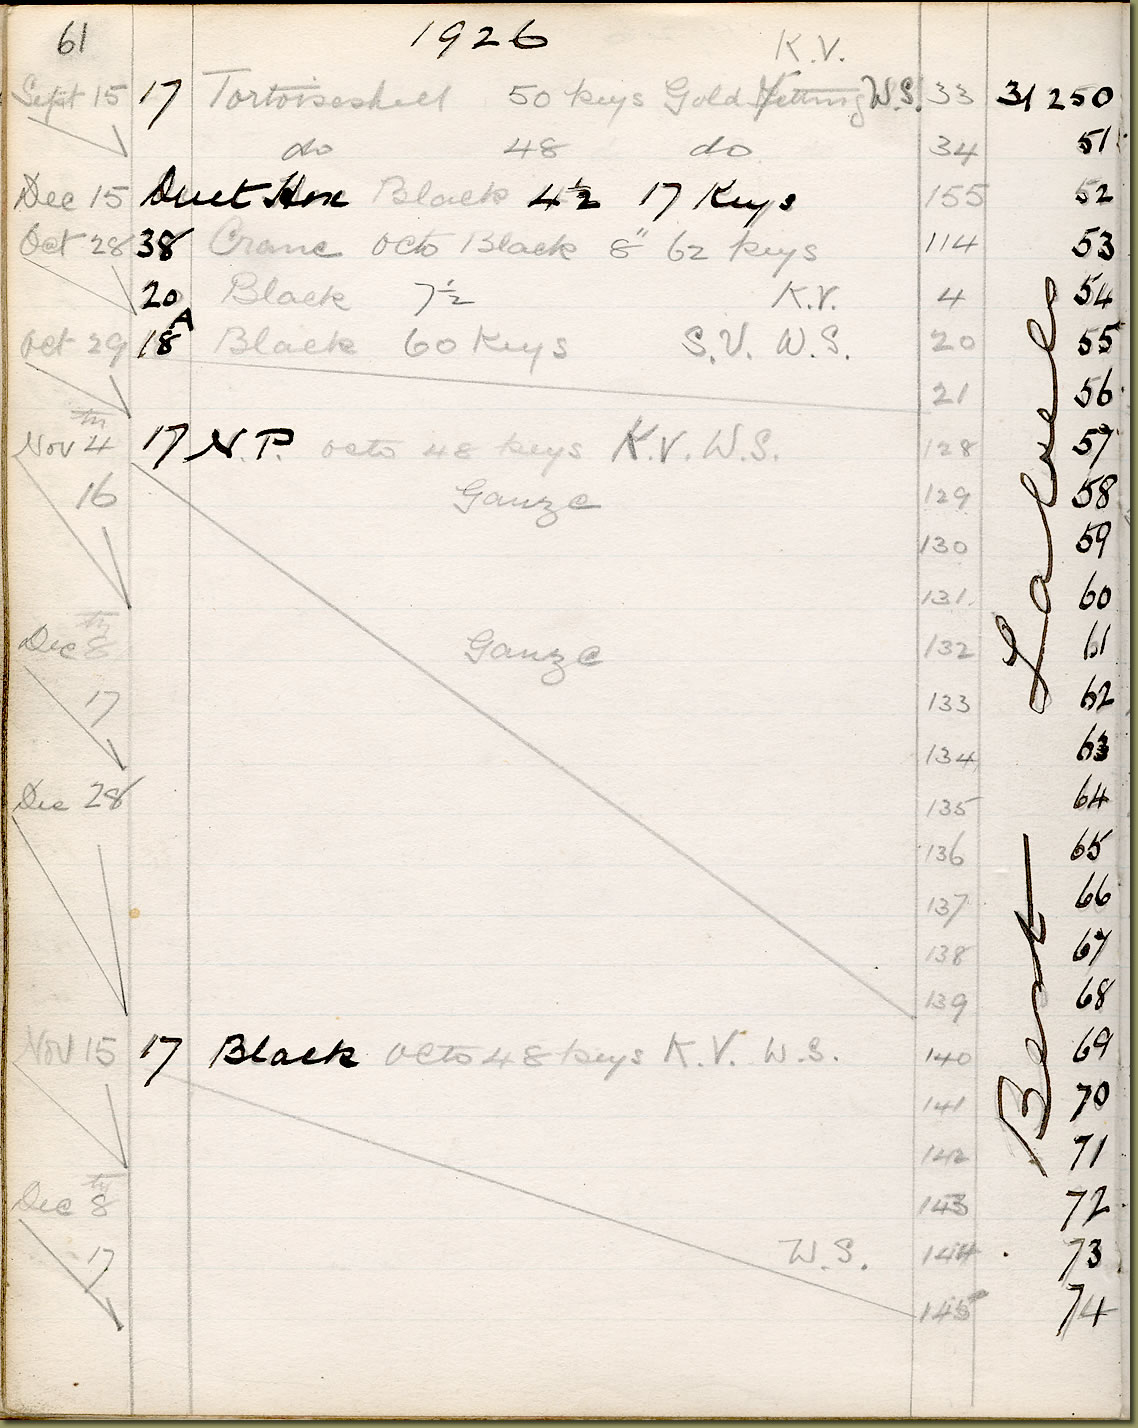 61 1926
K.V.
Sept 15 17 Tortoiseshell 50 keys Gold W.S. 33 31250
do 48 do 34 51
Dec 15 Duet Hex Black 4½ 17 Keys 155 52
Oct 28 38 Crane octo Black 8" 62 keys 114 53
20 Black 7½ K.V. 4 54
Oct 29 18A Black 60 Keys S.V. W.S. 20 55
21 56
Nov 4th 17 N.P. octo 48 keys K.V. W.S. 128 57
16 Ganze 129 58
130 59
131 60
Dec 8th Ganze 132 61
17 133 62
134 63
Dec 28 135 64
136 65
137 66
138 67
139 68
Nov 15 17 Black octo 48 keys K.V. W.S. 140 69
141 70
142 71
Dec 8th 143 72
17 W.S. 144 73
145 74
Best Labels